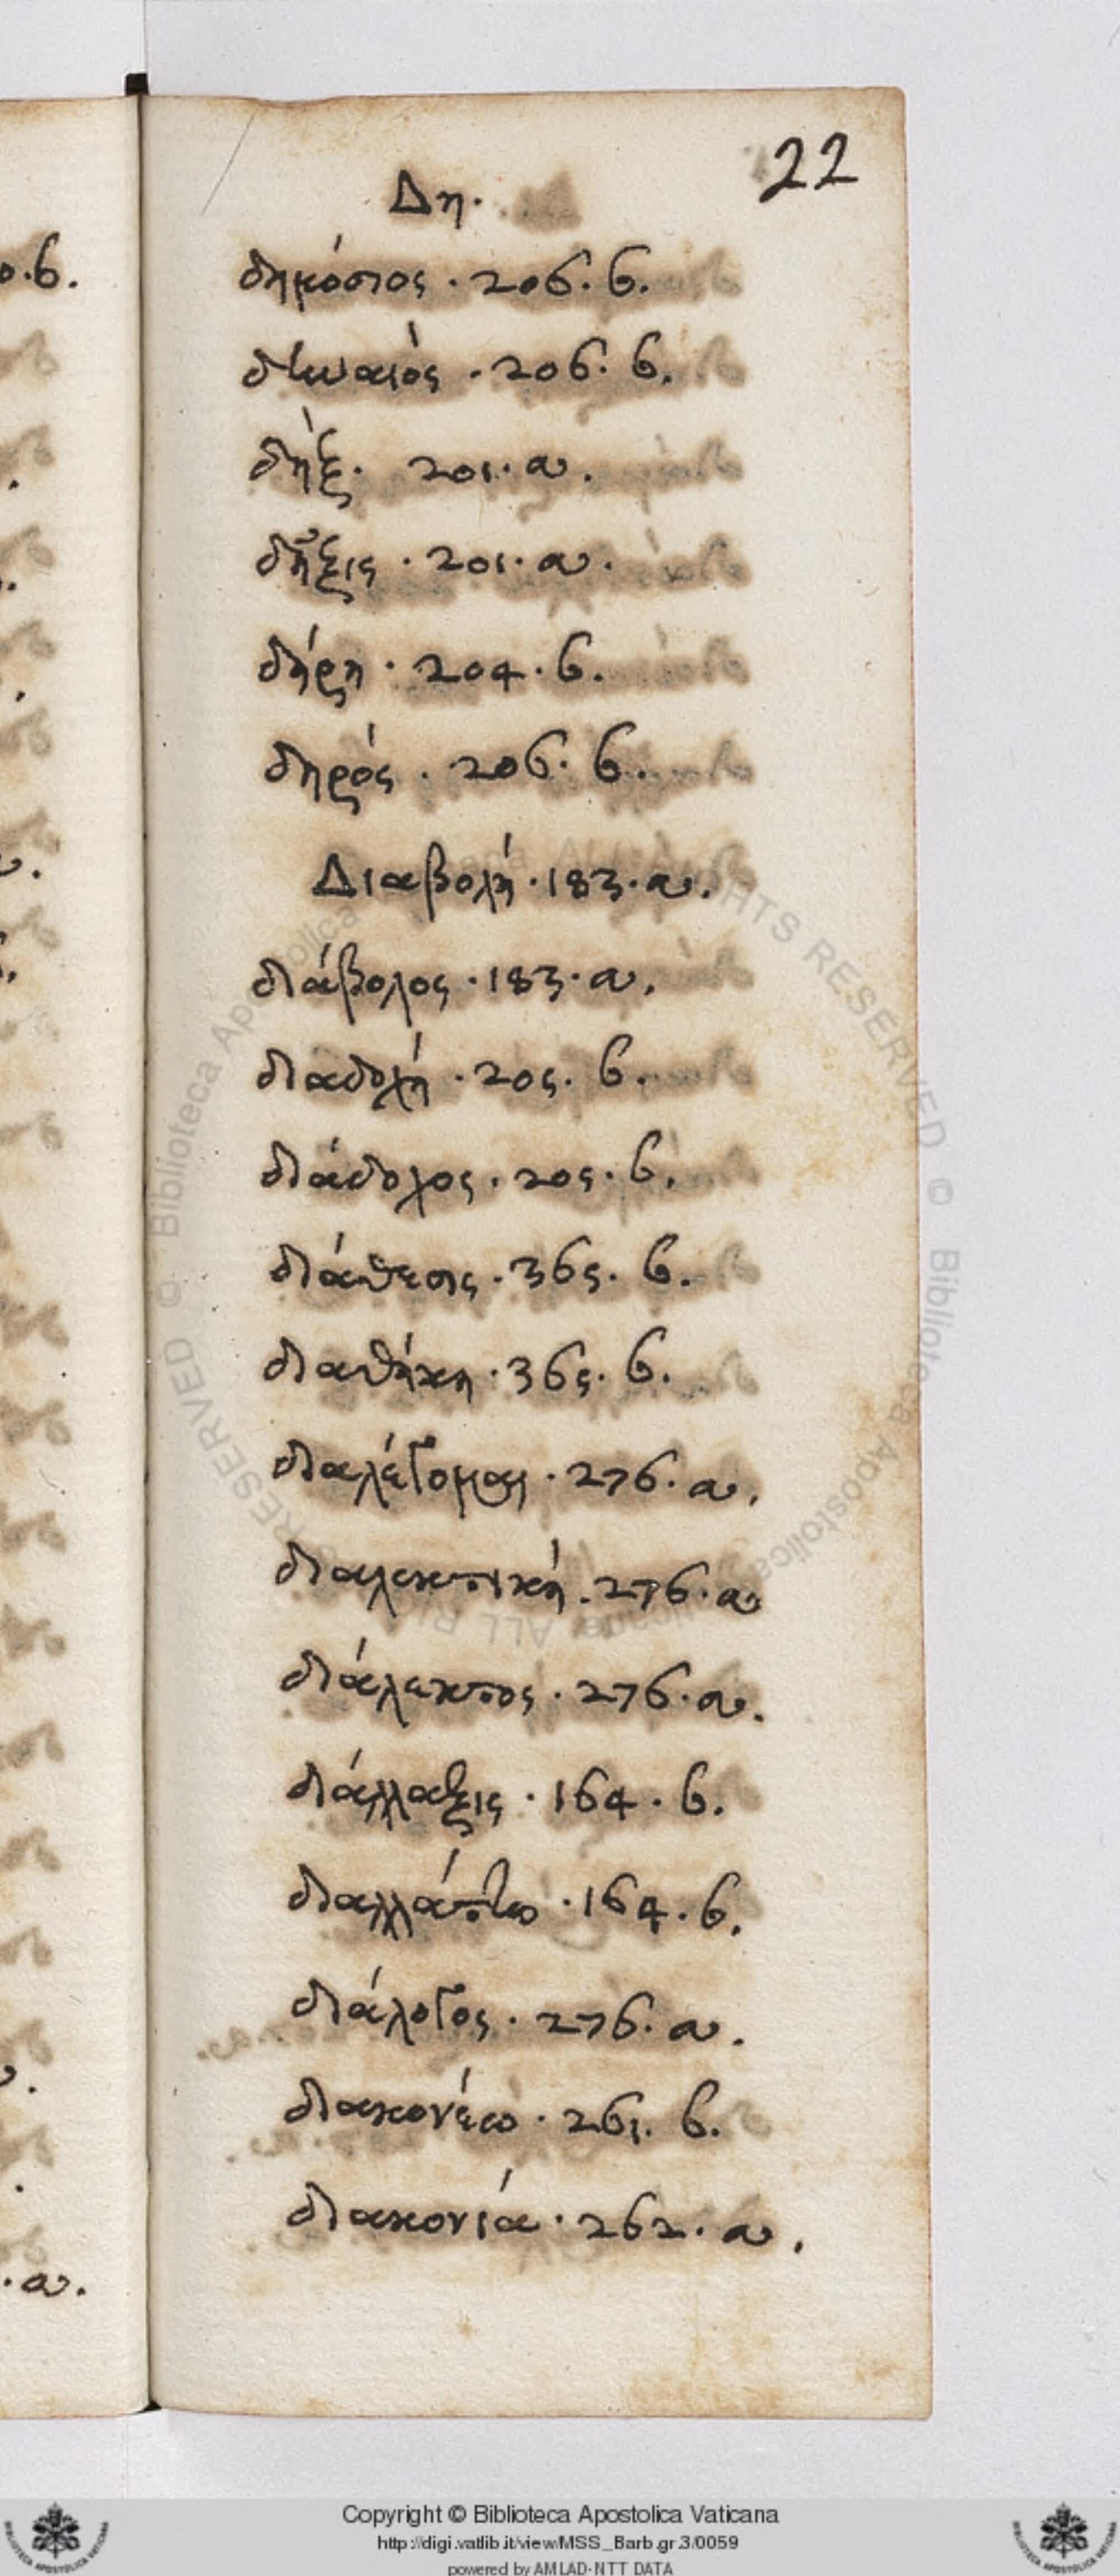 22
Δη.
δημόσιος · 206. b.
δηναιὸς · 206. b.
δὴξ. 201. a.
δῆξις · 201. a.
δήρη · 204. b.
δηρός · 206. b.
Διαβολή · 183. a.
διάβολος · 183. a.
διαδοχή · 205. b.
διάδοχος · 205. b.
διάθεσις · 365. b.
διαθήκη · 365. b.
διαλέγομαι · 276. a.
διαλεκτική. 276. a
διάλεκτος · 276. a.
διάλλαξις · 164. b.
διαλλάττω · 164. b.
διάλογος · 276. a.
διακονέω · 261. b.
διακονία · 262. a.
Copyright © Biblioteca Apostolica Vaticana
http://digi.vatlib.it/view/MSS_Barb.gr.3/0059
powered by AMLAD-NTT DATA